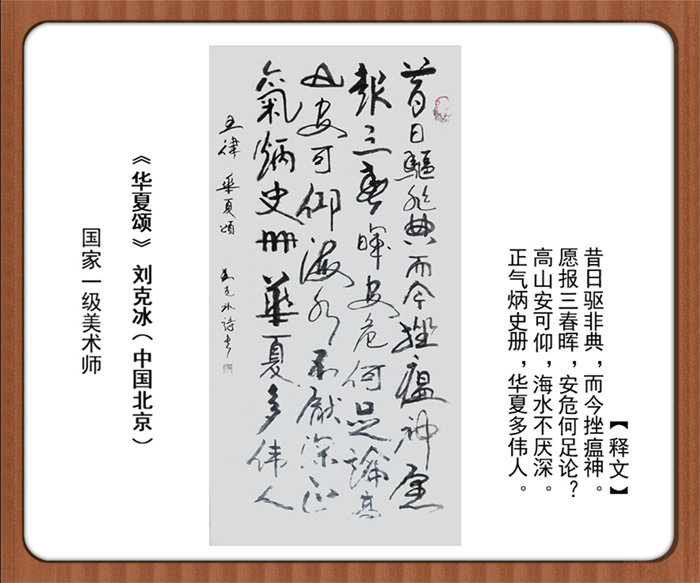 【释文】
昔日驱非典，而今挫瘟神。
愿报三春晖，安危何足论？
高山安可仰，海水不厌深。
正气炳史册，华夏多伟人。
昔日驅非典而今挫瘟神愿
報三春晖安危何足論高
山安可仰海水不厭深正
氣炳史册華夏多伟人
五律 華夏頌 刘克冰诗书
《华夏颂》刘克冰（中国北京）
国家一级美术师